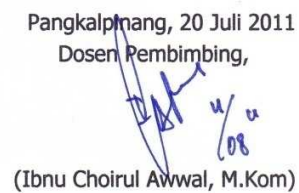 Pangkalpinang, 20 Juli 2011
Dosen Pembimbing,
(Ibnu Choirul Awwal, M.Kom)